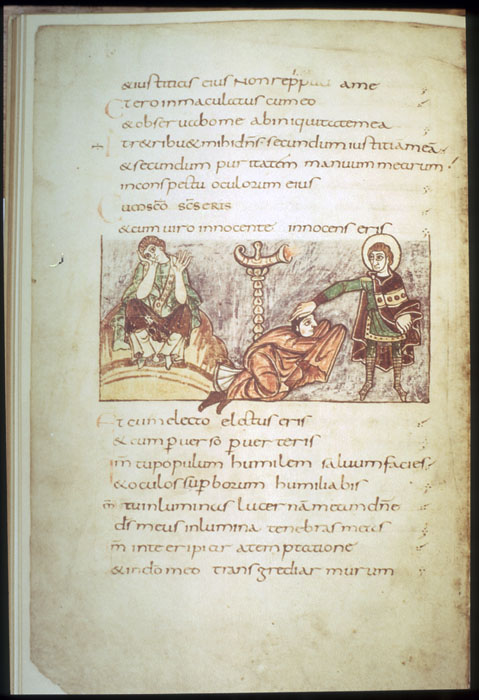 &iustitias eius Non repp a me
Et ero inmaculatus cum eo
& obseruabo me ab iniquitate mea
Et retribu& mihi dn̄s secundum iustitiam meā
& secundum puritatem manuum mearum
in conspectu oculorum eius
Cum sc̄o sc̄s eris
& cum uiro innocente innocens eris
Et cum electo electus eris
& cum ꝑuerso ꝑuerteris
qm̄ tu populum humilem saluum facies
& oculos suꝑborum humiliabis
qm̄ tu inluminas lucernam meam dn̄e
ds̄ meus inlumina tenebras meas
qm̄ in te eripiar a temptatione
& in do meo transgrediar murum